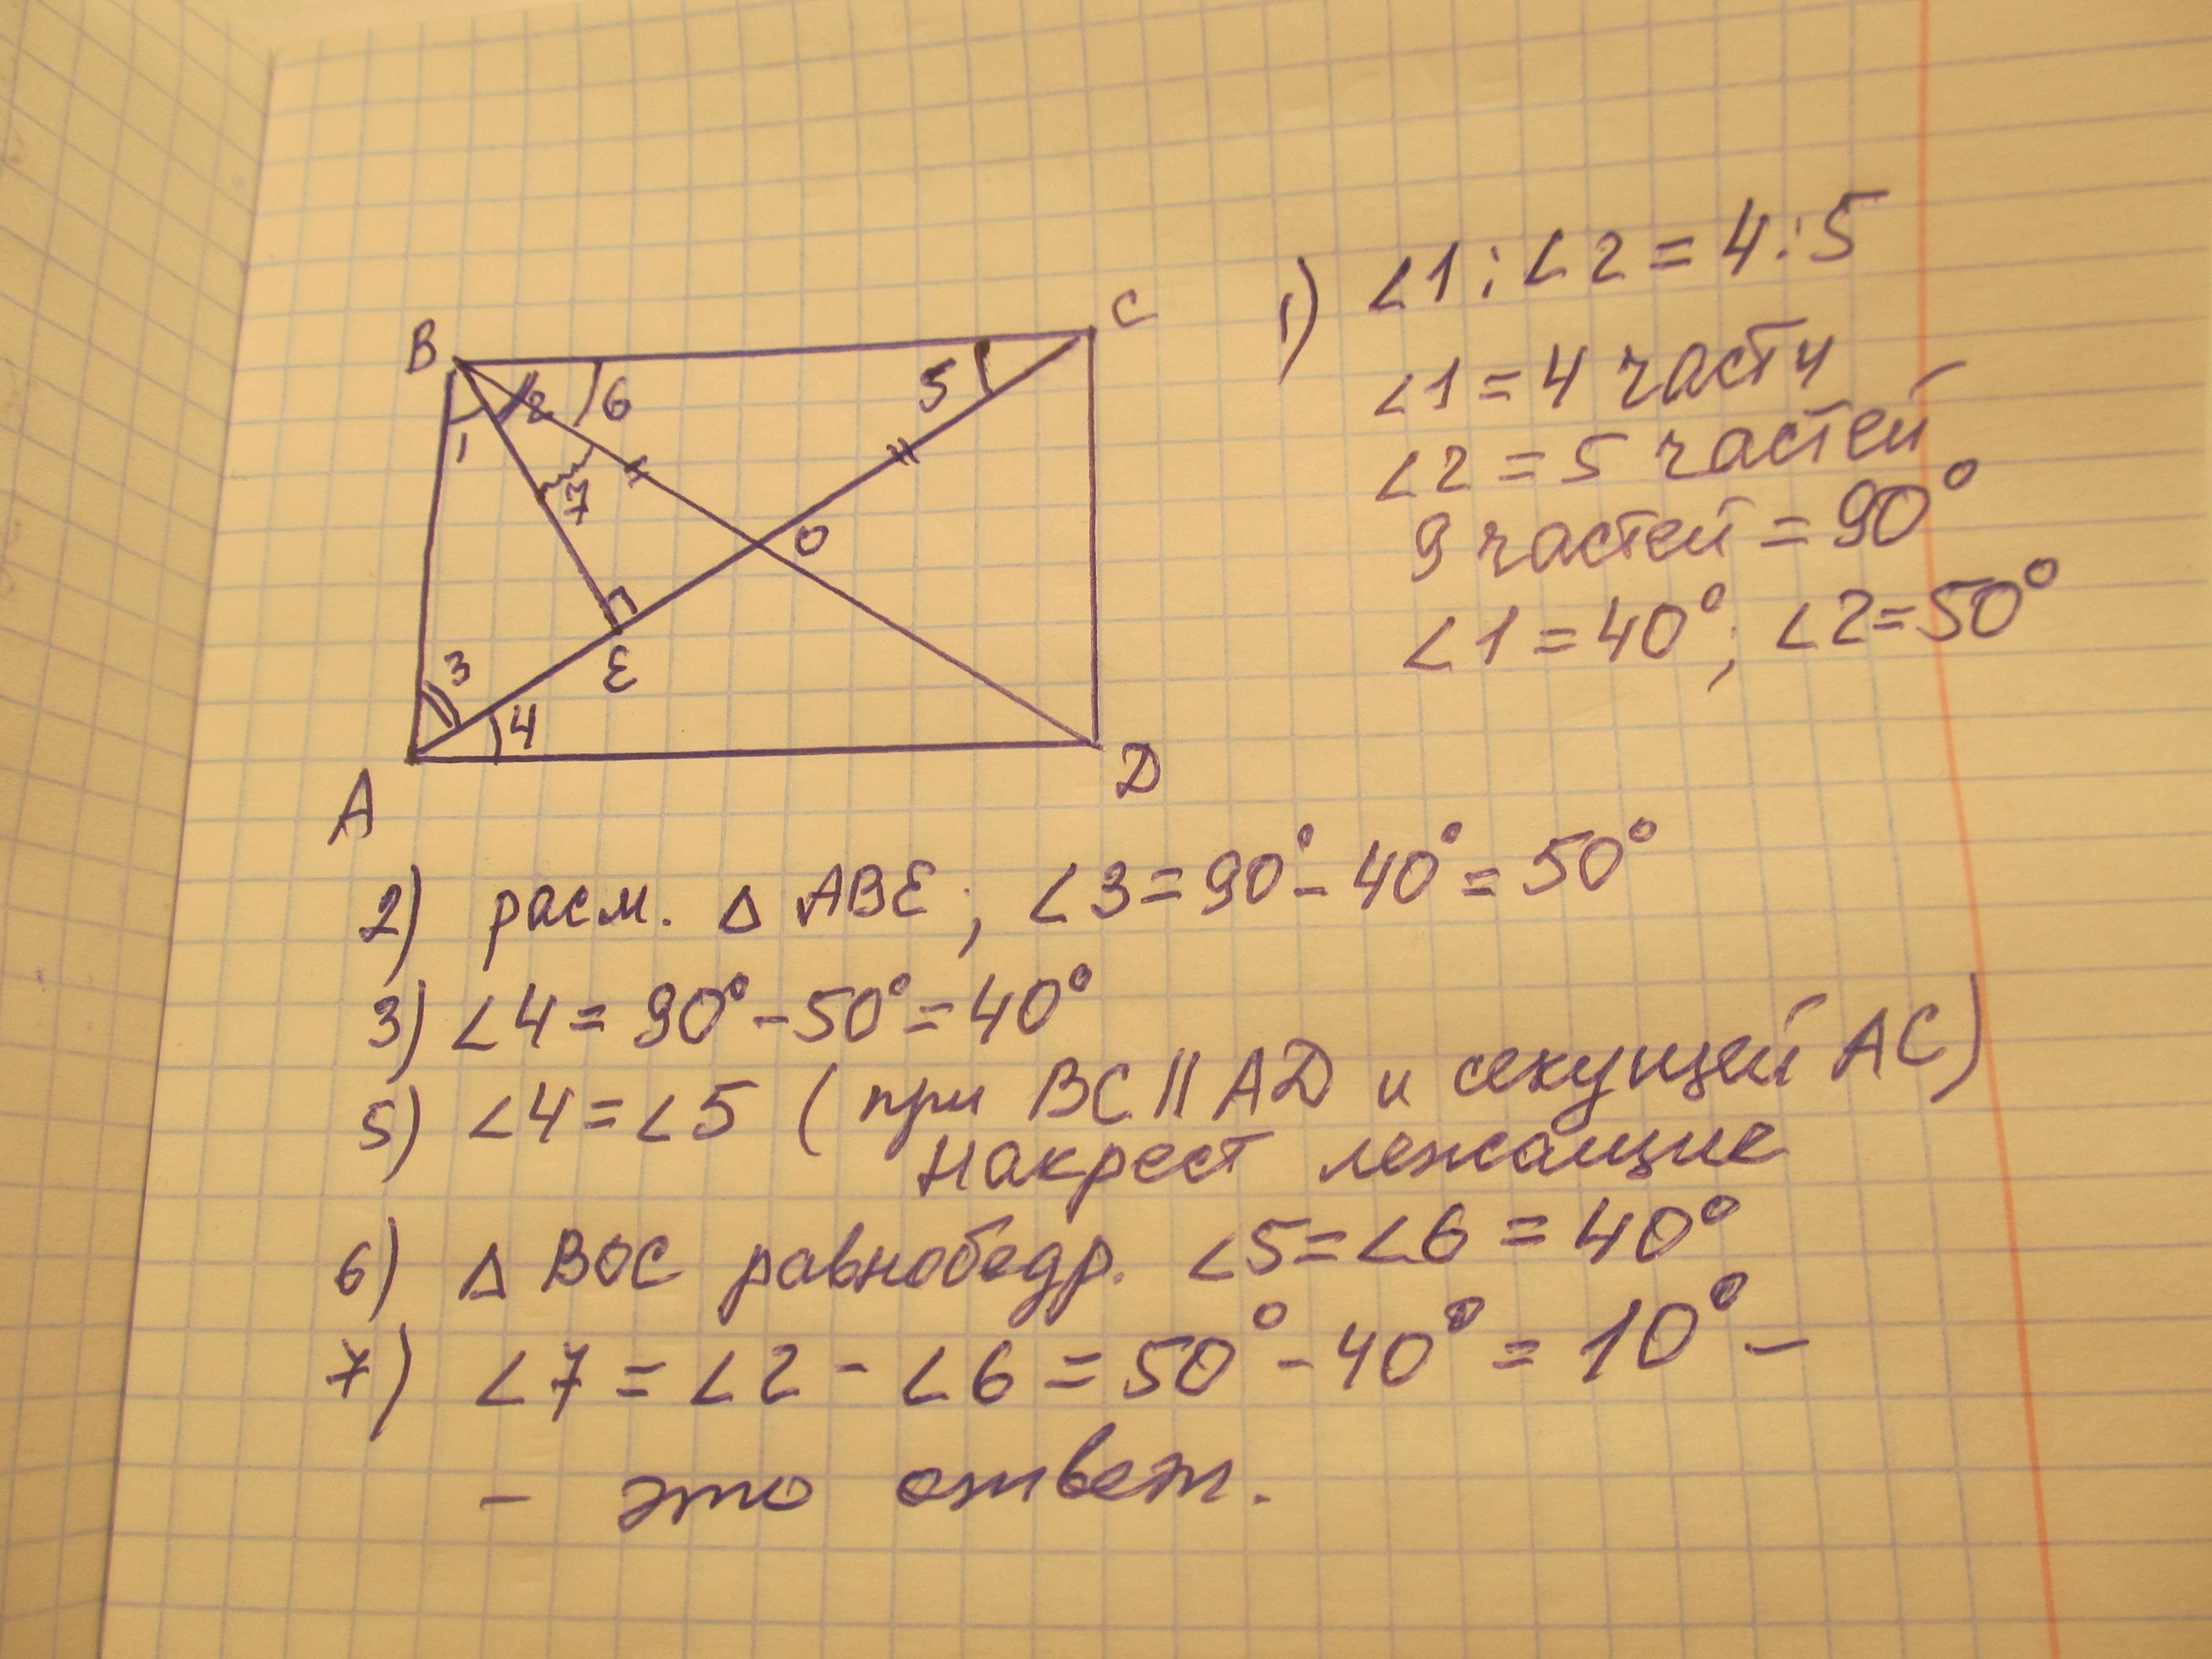 B
C
1
2
6
5
7
O
E
3
4
A
D
1) ∠1 : ∠2 = 4 : 5
∠1 = 4 части
∠2 = 5 частей
9 частей = 90°
∠1 = 40°; ∠2 = 50°
2) расм. Δ ABE; ∠3 = 90° - 40° = 50°
3) ∠4 = 90° - 50° = 40°
5) ∠4 = ∠5 (при BC || AD и секущей AC)
накрест лежащие
6) Δ BOC равнобедр. ∠5 = ∠6 = 40°
7) ∠7 = ∠2 - ∠6 = 50° - 40° = 10° -
- это ответ.